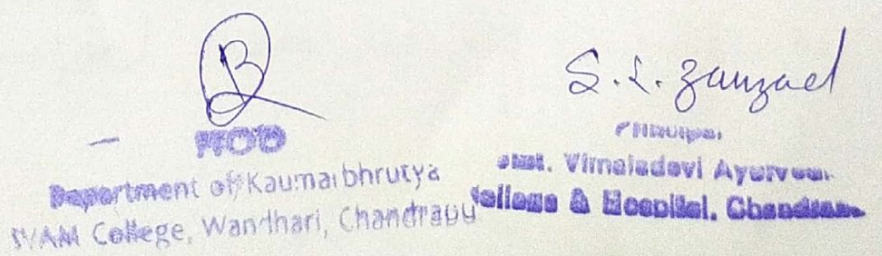 B
HOD
Department of Kaumarbhrutya
SVAM College, Wandhari, Chandrapu
S. L. Zanzad
Principal
Smt. Vimaladevi Ayurved
College & Hospital. Chandra